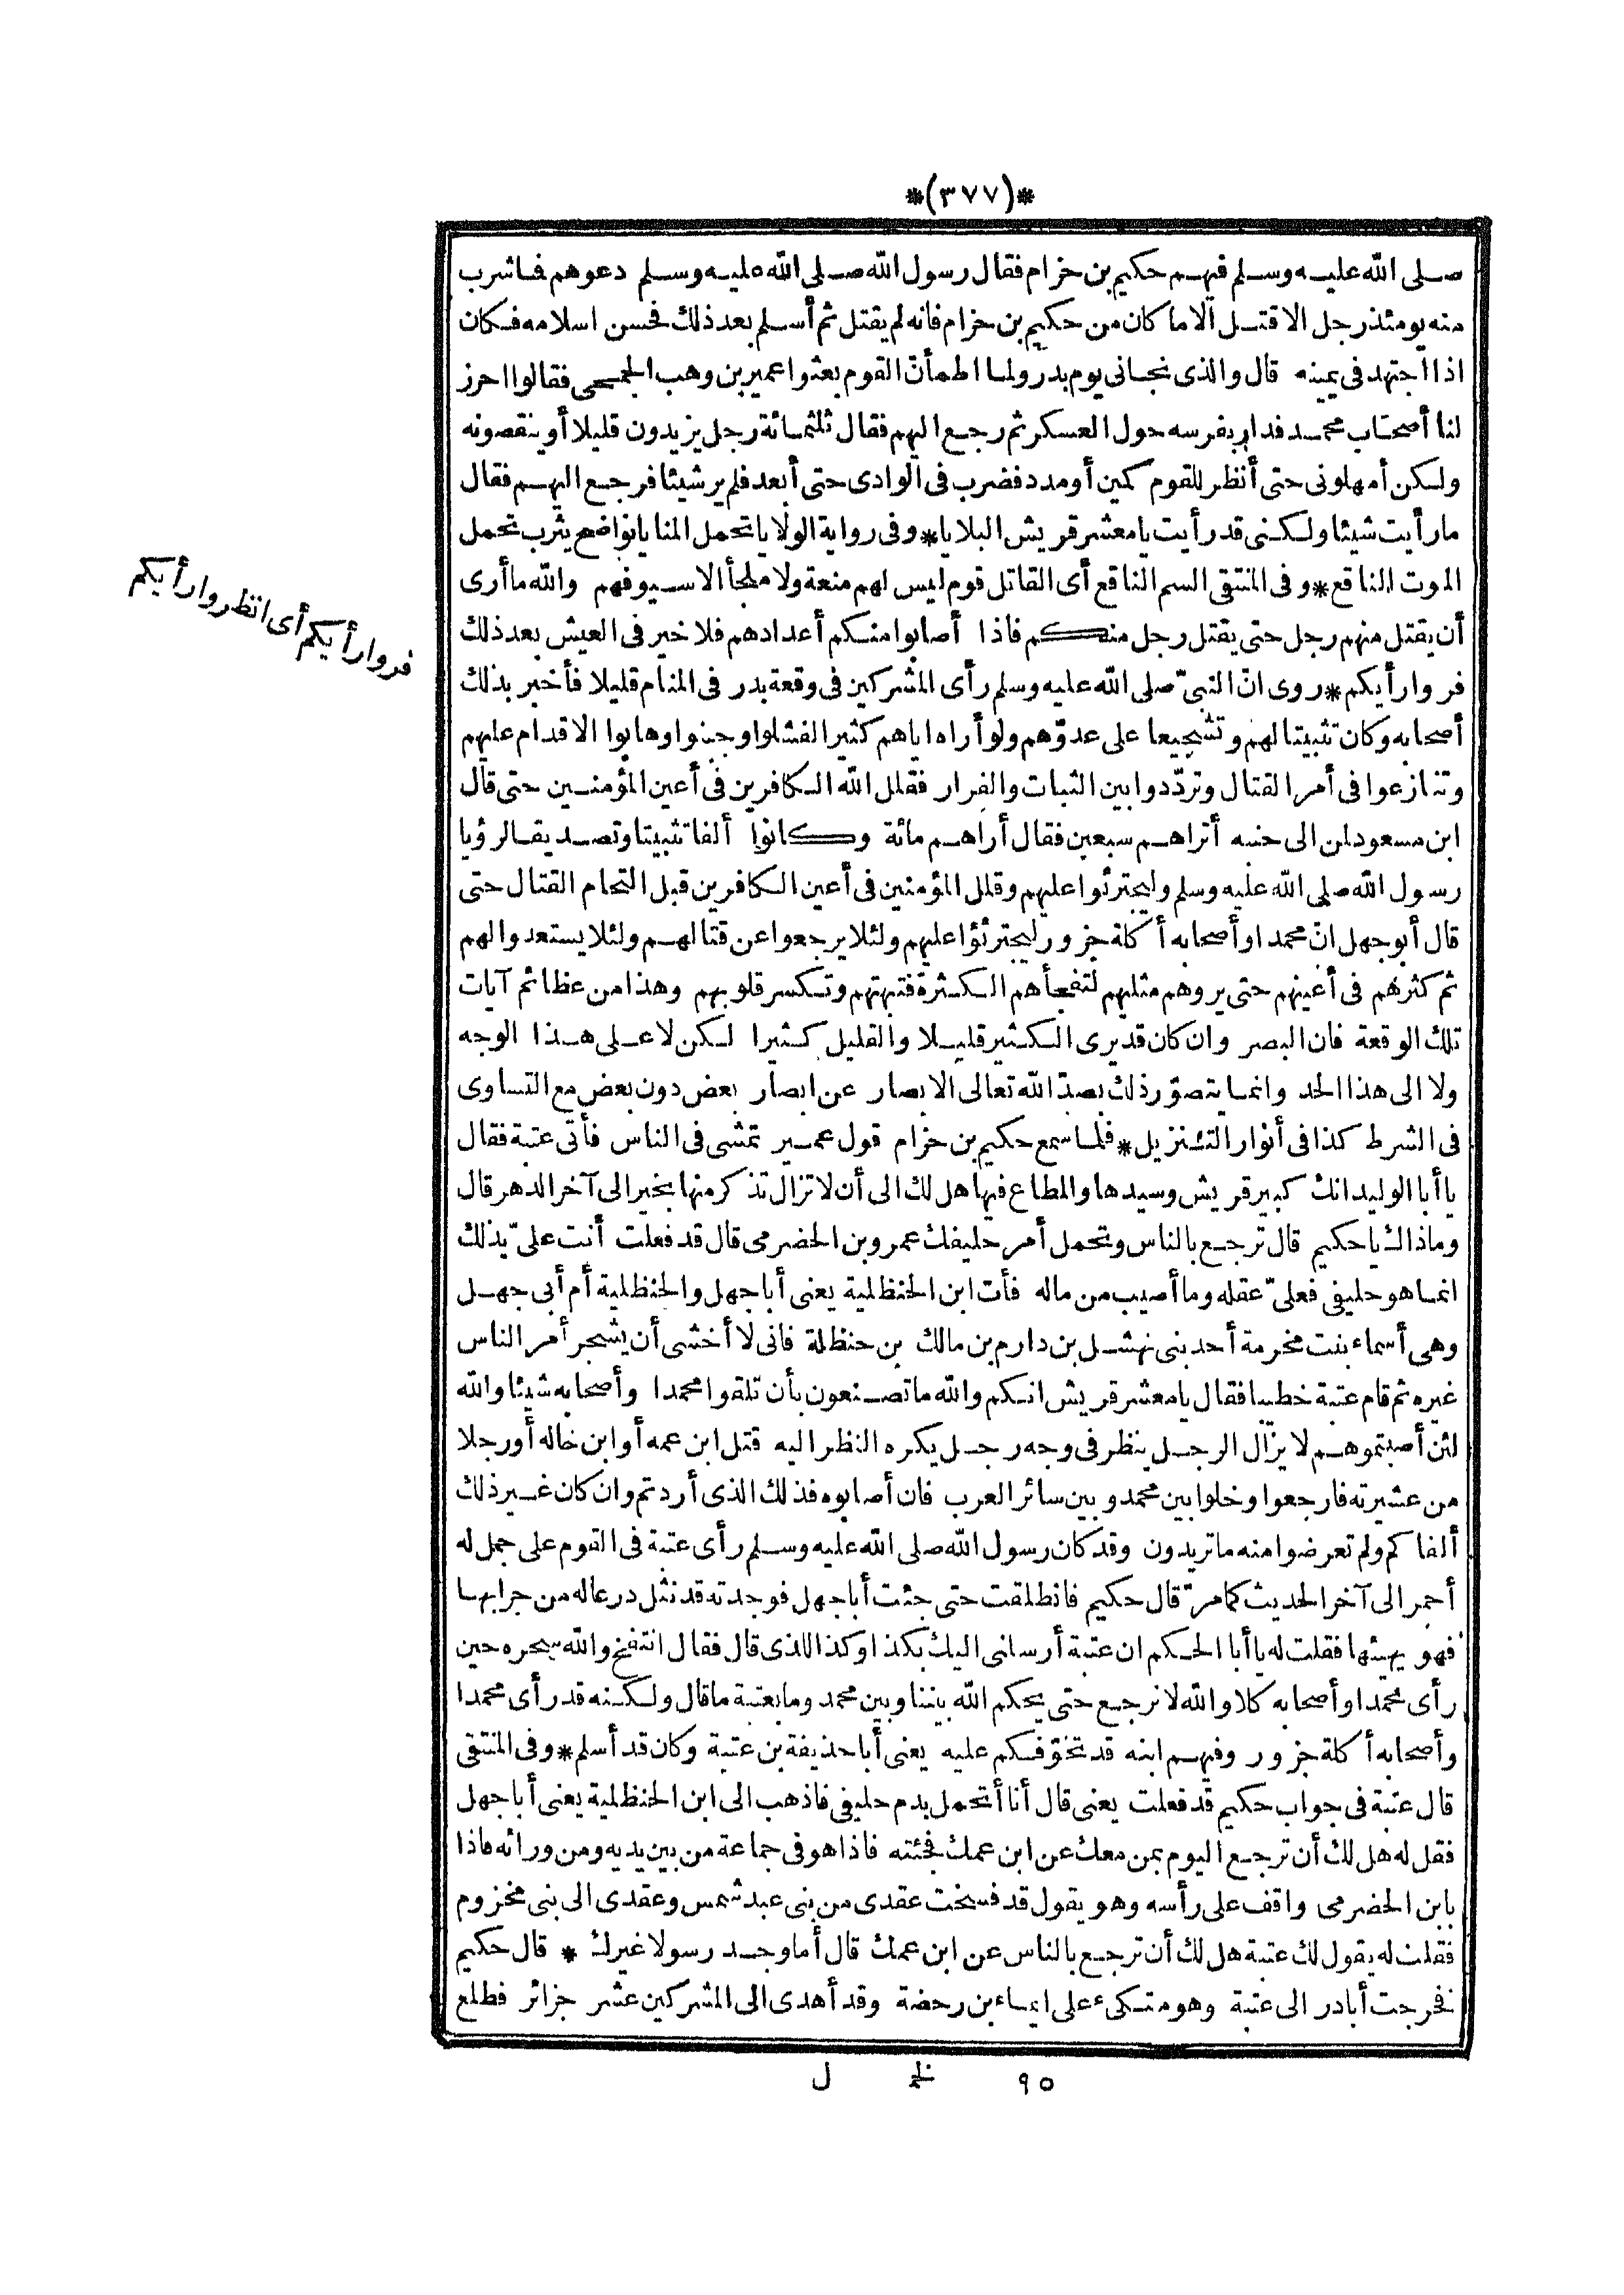 *(٣٧٧)*
صلى الله عليه وسلم فيهم حكيم بن حزام فقال رسول الله صلى الله عليه وسلم دعوهم فاشرب
منه يومئذ رجل الا قتل الا ما كان من حكيم بن حزام فانه لم يقتل ثم أسلم بعد ذلك فحسن اسلامه فكان
اذا اجتهد فى يمينه قال والذى نجانى يوم بدر ولما اطمأنّ القوم بعثوا عمير بن وهب الجمحى فقالوا احرز
لنا أصحاب محمد فدار بفرسه حول العسكر ثم رجع اليهم فقال ثلثمائة رجل يزيدون قليلا أو ينقصونه
ولكن أمهلونى حتى أنظر للقوم كمين أو مدد فضرب فى الوادى حتى أبعد فلم ير شيئا فرجع اليهم فقال
ما رأيت شيئا ولكنى قد رأيت يا معشر قريش البلايا * وفى رواية الولايا تحمل المنايا نواضح يثرب تحمل
الموت الناقع * وفى المنتقى السم الناقع أى القاتل قوم ليس لهم منعة ولا ملجأ الا سيوفهم والله ما أرى
أن يقتل منهم رجل حتى يقتل رجل منكم فاذا أصابوا منكم أعدادهم فلا خير فى العيش بعد ذلك
فروا رأيكم * روى انّ النبىّ صلى الله عليه وسلم رأى المشركين فى وقعة بدر فى المنام قليلا فأخبر بذلك
أصحابه وكان تثبيتا لهم وتشجيعا على عدوّهم ولو أراه اياهم كثيرا لفشلوا وجبنوا وهابوا الاقدام عليهم
وتنازعوا فى أمر القتال وتردّدوا بين الثبات والفرار فقلل الله الكافرين فى أعين المؤمنين حتى قال
ابن مسعود لمن الى جنبه أتراهم سبعين فقال أراهم مائة وكانوا ألفا تثبيتا وتصديقا لرؤيا
رسول الله صلى الله عليه وسلم وليجترئوا عليهم وقلل المؤمنين فى أعين الكافرين قبل التحام القتال حتى
قال أبو جهل انّ محمدا وأصحابه أكلة جزور ليجترئؤا عليهم ولئلا يرجعوا عن قتالهم ولئلا يستعدوا لهم
ثم كثرهم فى أعينهم حتى يروهم مثليهم لتفجأهم الكثرة فتبهتهم وتكسر قلوبهم وهذا من عظائم آيات
تلك الوقعة فان البصر وان كان قد يرى الكثير قليلا والقليل كثيرا لكن لا على هذا الوجه
ولا الى هذا الحد وانما يتصوّر ذلك بصدّ الله تعالى الابصار عن ابصار بعض دون بعض مع التساوى
فى الشرط كذا فى أنوار التنزيل * فلما سمع حكيم بن حزام قول عمير تمشى فى الناس فأتى عتبة فقال
يا أبا الوليد انك كبير قريش وسيدها والمطاع فيها هل لك الى أن لا تزال تذكر منها بخير الى آخر الدهر قال
وما ذاك يا حكيم قال ترجع بالناس وتحمل أمر حليفك عمرو بن الحضرمى قال قد فعلت أنت علىّ بذلك
انما هو حليفى فعلىّ عقله وما أصيب من ماله فأت ابن الحنظلية يعنى أبا جهل والحنظلية أم أبى جهل
وهى أسماء بنت مخرمة أحد بنى نهشل بن دارم بن مالك بن حنظلة فانى لا أخشى أن يشجر أمر الناس
غيره ثم قام عتبة خطيبا فقال يا معشر قريش انكم والله ما تصنعون بأن تلقوا محمدا وأصحابه شيئا والله
لئن أصبتموهم لا يزال الرجل ينظر فى وجه رجل يكره النظر اليه قتل ابن عمه أو ابن خاله أو رجلا
من عشيرته فارجعوا وخلوا بين محمد وبين سائر العرب فان أصابوه فذلك الذى أردتم وان كان غير ذلك
ألفاكم ولم تعرضوا منه ما تريدون وقد كان رسول الله صلى الله عليه وسلم رأى عتبة فى القوم على جمل له
أحمر الى آخر الحديث كما مرّ قال حكيم فانطلقت حتى جئت أبا جهل فوجدته قد نثل درعا له من جرابها
فهو يهيئها فقلت له يا أبا الحكم ان عتبة أرسلنى اليك بكذا وكذا للذى قال فقال انتفخ والله سحره حين
رأى محمدا وأصحابه كلا والله لا نرجع حتى يحكم الله بيننا وبين محمد وما بعتبة ما قال ولكنه قد رأى محمدا
وأصحابه أكلة جزور وفيهم ابنه قد تخوّفكم عليه يعنى أبا حذيفة بن عتبة وكان قد أسلم * وفى المنتقى
قال عتبة فى جواب حكيم قد فعلت يعنى قال أنا أتحمل بدم حليفى فاذهب الى ابن الحنظلية يعنى أبا جهل
فقل له هل لك أن ترجع اليوم بمن معك عن ابن عمك فجئته فاذا هو فى جماعة من بين يديه ومن ورائه فاذا
بابن الحضرمى واقف على رأسه وهو يقول قد فسخت عقدى من بنى عبد شمس وعقدى الى بنى مخزوم
فقلت له يقول لك عتبة هل لك أن ترجع بالناس عن ابن عمك قال أما وجد رسولا غيرك * قال حكيم
فخرجت أبادر الى عتبة وهو متكىء على ايماء بن رحضة وقد أهدى الى المشركين عشر جزائر فطلع
فروا رأيكم أى انظروا رأيكم
٩٥ خ ل